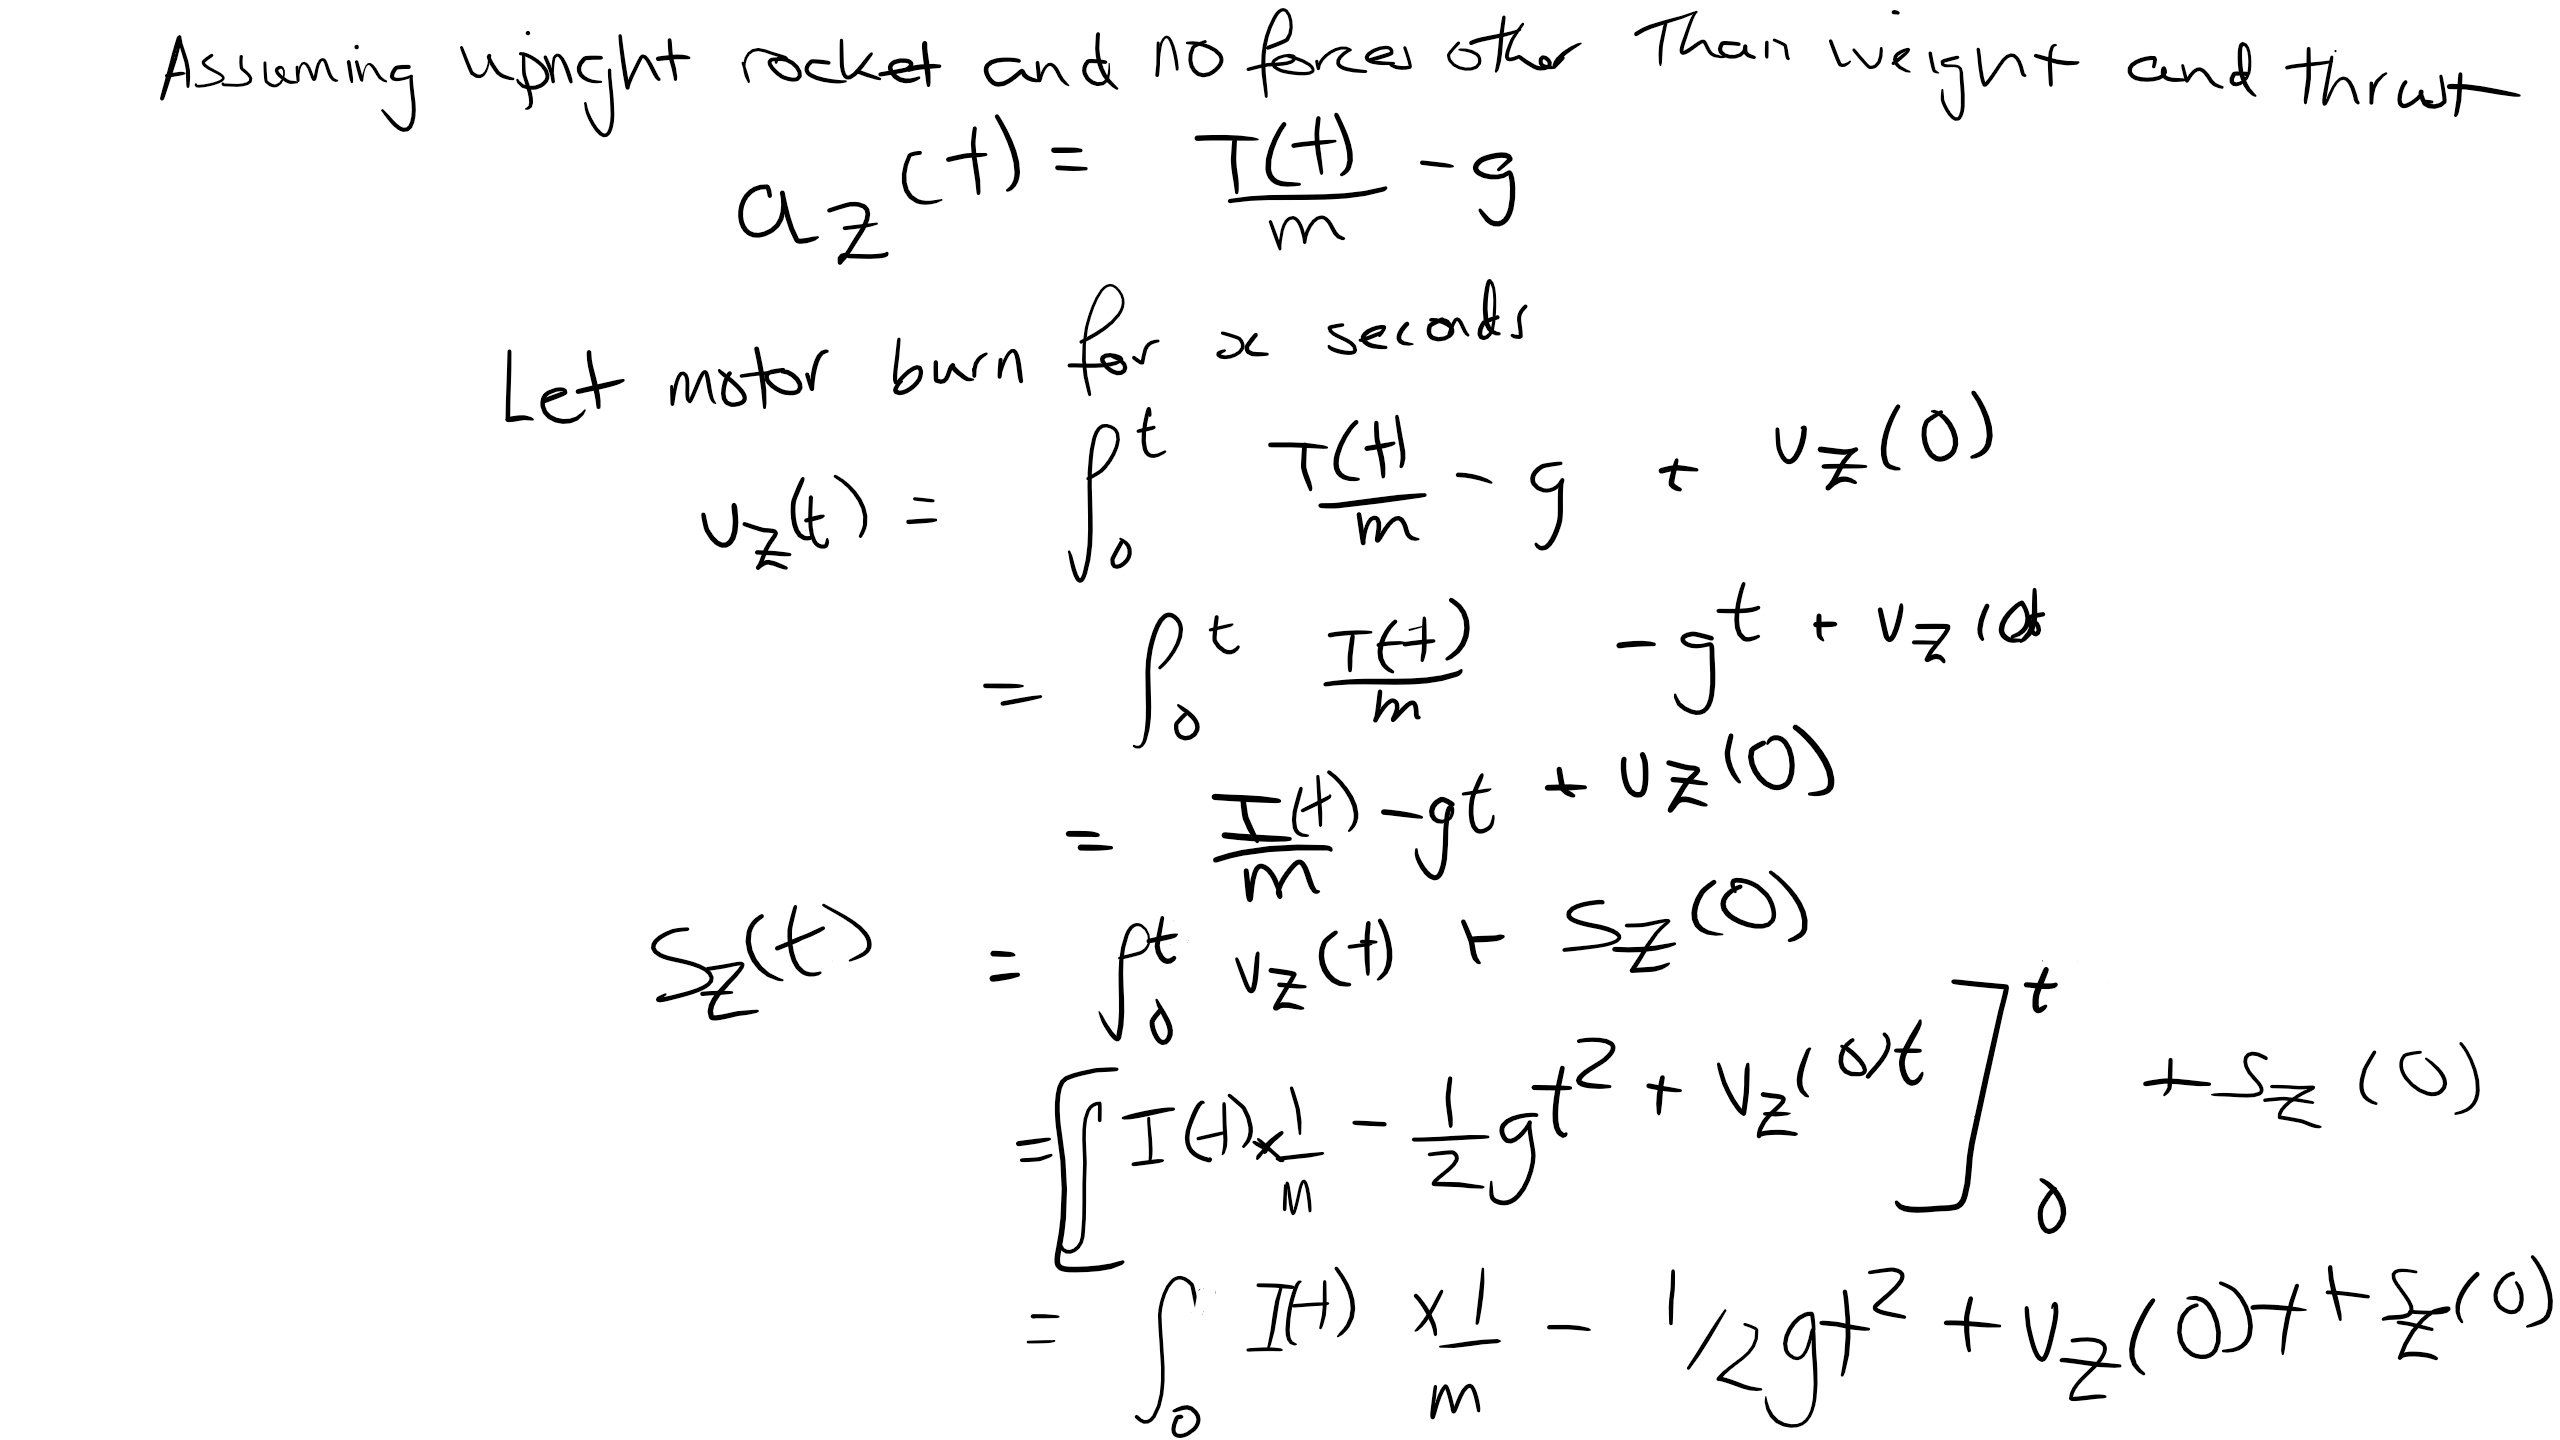 Assuming upright rocket and no forces other than weight and thrust
a_z(t) = T(t)/m - g
Let motor burn for x seconds
v_z(t) = ∫_0^t T(t)/m - g + v_z(0)
= ∫_0^t T(t)/m - gt + v_z(0)
= I(t)/m - gt + v_z(0)
S_z(t) = ∫_0^t v_z(t) + S_z(0)
= [∫ I(t) × 1/m - 1/2 gt^2 + v_z(0)t]_0^t + S_z(0)
= ∫_0 I(t) × 1/m - 1/2 gt^2 + v_z(0)t + S_z(0)